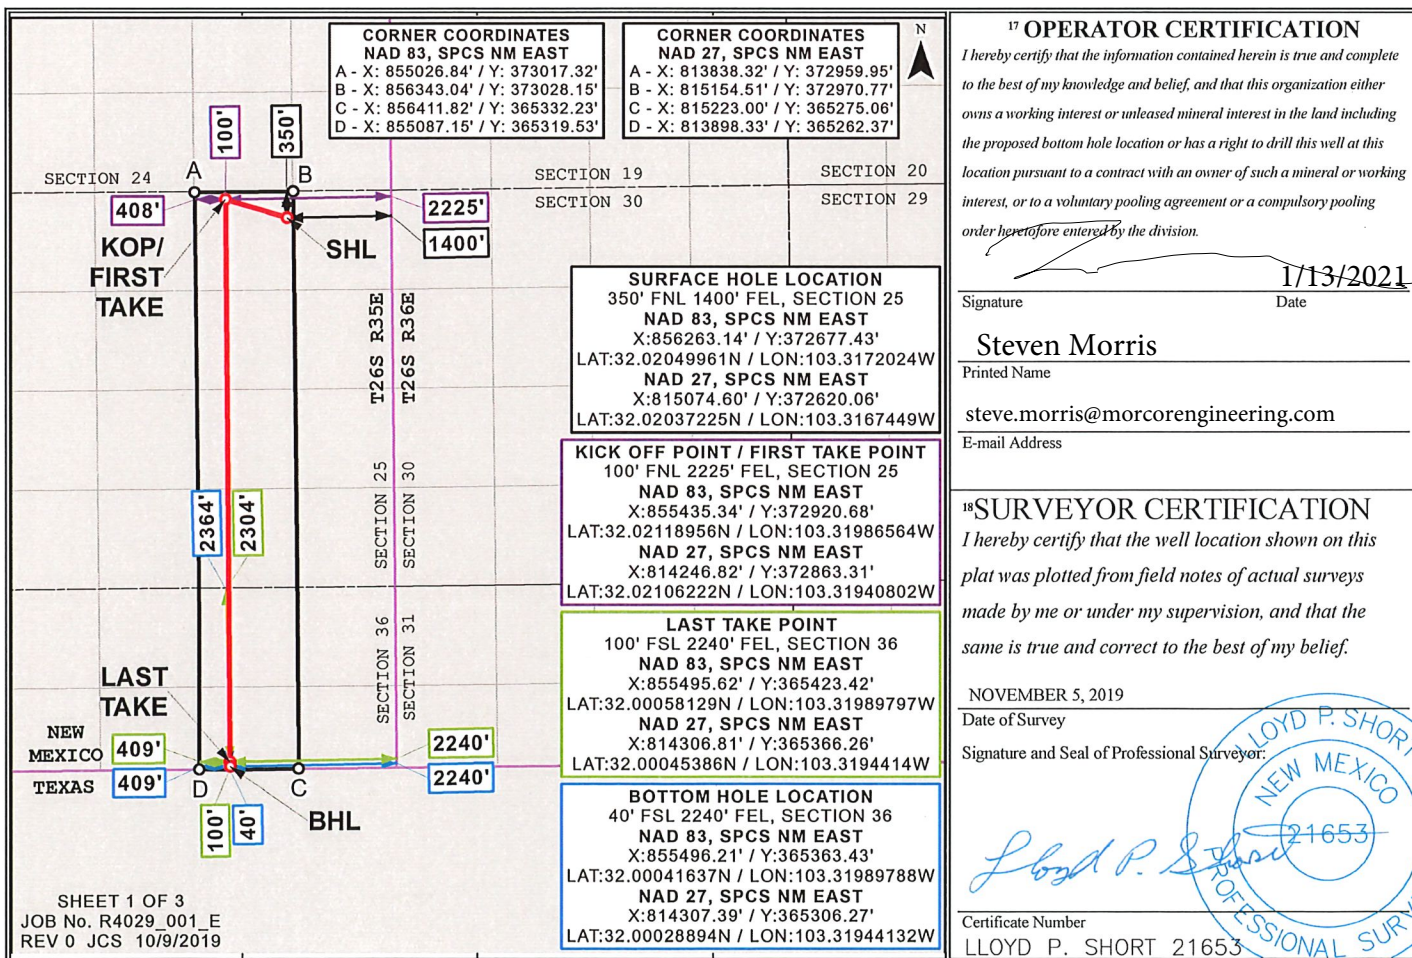 CORNER COORDINATES
NAD 83, SPCS NM EAST
A - X: 855026.84' / Y: 373017.32'
B - X: 856343.04' / Y: 373028.15'
C - X: 856411.82' / Y: 365332.23'
D - X: 855087.15' / Y: 365319.53'
CORNER COORDINATES
NAD 27, SPCS NM EAST
A - X: 813838.32' / Y: 372959.95'
B - X: 815154.51' / Y: 372970.77'
C - X: 815223.00' / Y: 365275.06'
D - X: 813898.33' / Y: 365262.37'
N
100'
350'
A
B
SECTION 24
SECTION 19
SECTION 20
SECTION 30
SECTION 29
408'
2225'
1400'
KOP/
FIRST
TAKE
SHL
T26S R35E
T26S R36E
SURFACE HOLE LOCATION
350' FNL 1400' FEL, SECTION 25
NAD 83, SPCS NM EAST
X:856263.14' / Y:372677.43'
LAT:32.02049961N / LON:103.3172024W
NAD 27, SPCS NM EAST
X:815074.60' / Y:372620.06'
LAT:32.02037225N / LON:103.3167449W
KICK OFF POINT / FIRST TAKE POINT
100' FNL 2225' FEL, SECTION 25
NAD 83, SPCS NM EAST
X:855435.34' / Y:372920.68'
LAT:32.02118956N / LON:103.31986564W
NAD 27, SPCS NM EAST
X:814246.82' / Y:372863.31'
LAT:32.02106222N / LON:103.31940802W
SECTION 25
SECTION 30
2364'
2304'
SECTION 36
SECTION 31
LAST TAKE POINT
100' FSL 2240' FEL, SECTION 36
NAD 83, SPCS NM EAST
X:855495.62' / Y:365423.42'
LAT:32.00058129N / LON:103.31989797W
NAD 27, SPCS NM EAST
X:814306.81' / Y:365366.26'
LAT:32.00045386N / LON:103.3194414W
LAST
TAKE
NEW
MEXICO
TEXAS
409'
409'
2240'
2240'
D
C
100'
40'
BHL
BOTTOM HOLE LOCATION
40' FSL 2240' FEL, SECTION 36
NAD 83, SPCS NM EAST
X:855496.21' / Y:365363.43'
LAT:32.00041637N / LON:103.31989788W
NAD 27, SPCS NM EAST
X:814307.39' / Y:365306.27'
LAT:32.00028894N / LON:103.31944132W
SHEET 1 OF 3
JOB No. R4029_001_E
REV 0 JCS 10/9/2019
17 OPERATOR CERTIFICATION
I hereby certify that the information contained herein is true and complete
to the best of my knowledge and belief, and that this organization either
owns a working interest or unleased mineral interest in the land including
the proposed bottom hole location or has a right to drill this well at this
location pursuant to a contract with an owner of such a mineral or working
interest, or to a voluntary pooling agreement or a compulsory pooling
order heretofore entered by the division.
1/13/2021
Signature Date
Steven Morris
Printed Name
steve.morris@morcorengineering.com
E-mail Address
18 SURVEYOR CERTIFICATION
I hereby certify that the well location shown on this
plat was plotted from field notes of actual surveys
made by me or under my supervision, and that the
same is true and correct to the best of my belief.
NOVEMBER 5, 2019
Date of Survey
Signature and Seal of Professional Surveyor:
LLOYD P. SHORT
NEW MEXICO
21653
PROFESSIONAL SURV
Lloyd P. Short
Certificate Number
LLOYD P. SHORT 21653